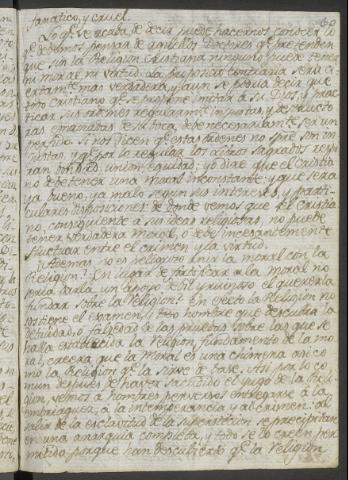 fanatico, y cruel. 60
Lo qe. se acaba de decir puede hacernos conocer lo
qe. debemos pensar de aquellos Doctores qe. pretenden
que sin la Religion Cristiana ninguno puede tener
ni moral, ni virtud. La proposicion contraria seria ci-
ertamte. mas verdadera; y aun se podia decir que
todo cristiano qe. se propone imitar a su Dios, y prac-
ticar sus ordenes regularmte. injustas, y destructo-
ras emanadas de su boca, debe necesariamte. ser un
perverso. Si nos dicen qe. estas ordenes no son siempre in-
justas, y qe. por lo regular los libros sagrados respi-
ran bondad, union, equidad; yo dire que el cristia-
no debe tener una moral inconstante; y que sera
ya bueno, ya malo segun sus intereses, y parti-
culares disposiciones; de donde vemos que el cristia-
no, consiguiente a sus ideas religiosas, no puede
tener verdadera moral, o debe incesantemente
fluctuar entre el crimen, y la virtud.
Ademas, no es peligroso unir la moral con la
Religion? En lugar de fortificar a la moral no
seria darla un apoyo debil y ruinoso el quererla
fundar sobre la Religion? En efecto la Religion no
sostiene el examen, y todo hombre que descubra la
debilidad, o falsedad de las pruebas sobre las que se
halla establecida la Religion, fundamento de la mo-
ral, creera que la Moral es una chimera asi co
mo la Religion qe. la sirve de base. Asi por lo co
mun despues de haver sacudido el yugo de la Reli-
gion, vemos a hombres perversos entregarse a la
embriaguez, a la intemperancia, y al crimen. Al
salir de la esclavitud de la supersticion se precipitan
en una anarquia completa, y todo se lo creen per
mitido, porque han descubierto qe. la Religion